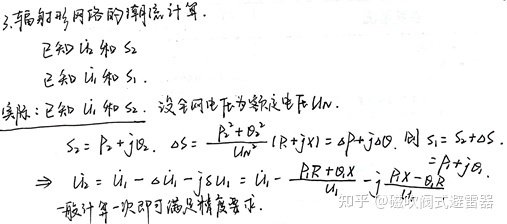 3.辐射形网络的潮流计算.
已知 U̇₂ 和 S₂
已知 U̇₁ 和 S₁.
实际:已知 U̇₁ 和 S₂. 设全网电压为额定电压 Uɴ.
S₂ = P₂ + jQ₂. ΔS = (P₂² + Q₂²)/Uɴ² (R + jX) = ΔP + jΔQ. 则 S₁ = S₂ + ΔS.
= P₁ + jQ₁
⇒ U̇₂ = U̇₁ - ΔU̇₁ - jδU₁ = U̇₁ - (P₁R + Q₁X)/U₁ - j (P₁X - Q₁R)/U₁
一般计算一次即可满足精度要求.
知乎 @磁吹阀式避雷器